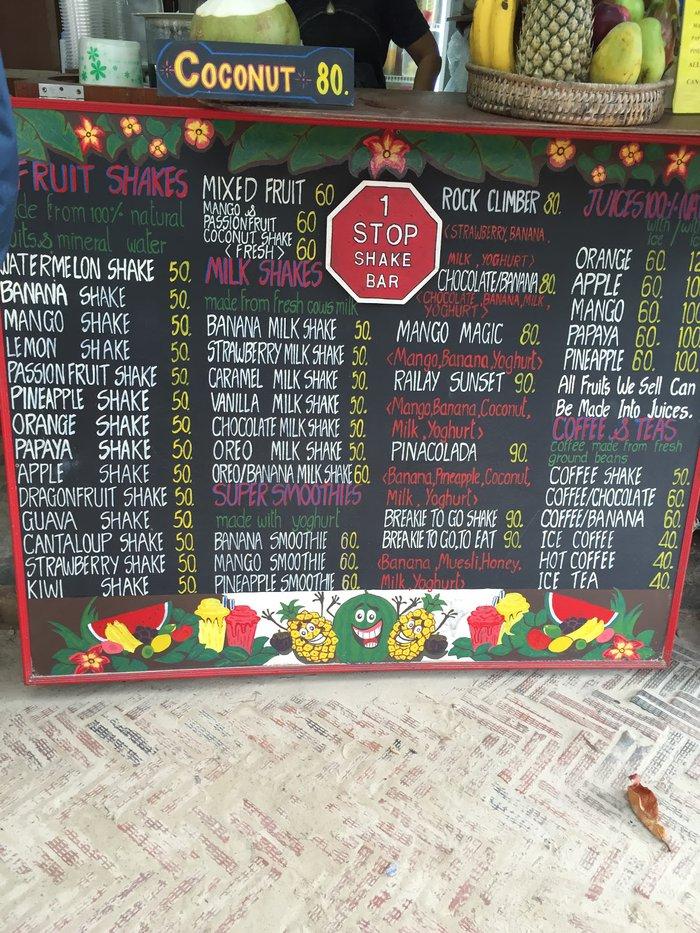 COCONUT 80.
FRUIT SHAKES
made from 100% natural
fruits & mineral water
WATERMELON SHAKE 50.
BANANA SHAKE 50.
MANGO SHAKE 50.
LEMON SHAKE 50.
PASSIONFRUIT SHAKE 50.
PINEAPPLE SHAKE 50.
ORANGE SHAKE 50.
PAPAYA SHAKE 50.
APPLE SHAKE 50.
DRAGONFRUIT SHAKE 50.
GUAVA SHAKE 50.
CANTALOUP SHAKE 50.
STRAWBERRY SHAKE 50.
KIWI SHAKE 50.
MIXED FRUIT 60
MANGO &
PASSIONFRUIT 60
COCONUT SHAKE
<FRESH> 60
MILK SHAKES
made from fresh cows milk
BANANA MILK SHAKE 50.
STRAWBERRY MILK SHAKE 50.
CARAMEL MILK SHAKE 50.
VANILLA MILK SHAKE 50.
CHOCOLATE MILK SHAKE 50.
OREO MILK SHAKE 50.
OREO/BANANA MILK SHAKE 60.
SUPER SMOOTHIES
made with yoghurt
BANANA SMOOTHIE 60.
MANGO SMOOTHIE 60.
PINEAPPLE SMOOTHIE 60.
1
STOP
SHAKE
BAR
ROCK CLIMBER 80.
<STRAWBERRY, BANANA,
MILK, YOGHURT>
CHOCOLATE/BANANA 80.
<CHOCOLATE, BANANA, MILK,
YOGHURT>
MANGO MAGIC 80.
<Mango, Banana, Yoghurt>
RAILAY SUNSET 90.
<Mango, Banana, Coconut,
Milk, Yoghurt>
PINACOLADA 90.
<Banana, Pineapple, Coconut,
Milk, Yoghurt>
BREAKIE TO GO SHAKE 90.
BREAKIE TO GO, TO EAT 90.
<Banana, Muesli, Honey,
Milk, Yoghurt>
JUICES 100% NA
with/wi
ice/
ORANGE 60. 12
APPLE 60. 10
MANGO 60. 100
PAPAYA 60. 100
PINEAPPLE 60. 100
All Fruits We Sell Can
Be Made Into Juices.
COFFEE & TEAS
coffee made from fresh
ground beans
COFFEE SHAKE 50.
COFFEE/CHOCOLATE 60.
COFFEE/BANANA 60.
ICE COFFEE 40.
HOT COFFEE 40.
ICE TEA 40.